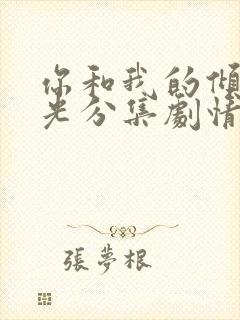 你和我的傾
光分集劇情
張夢根